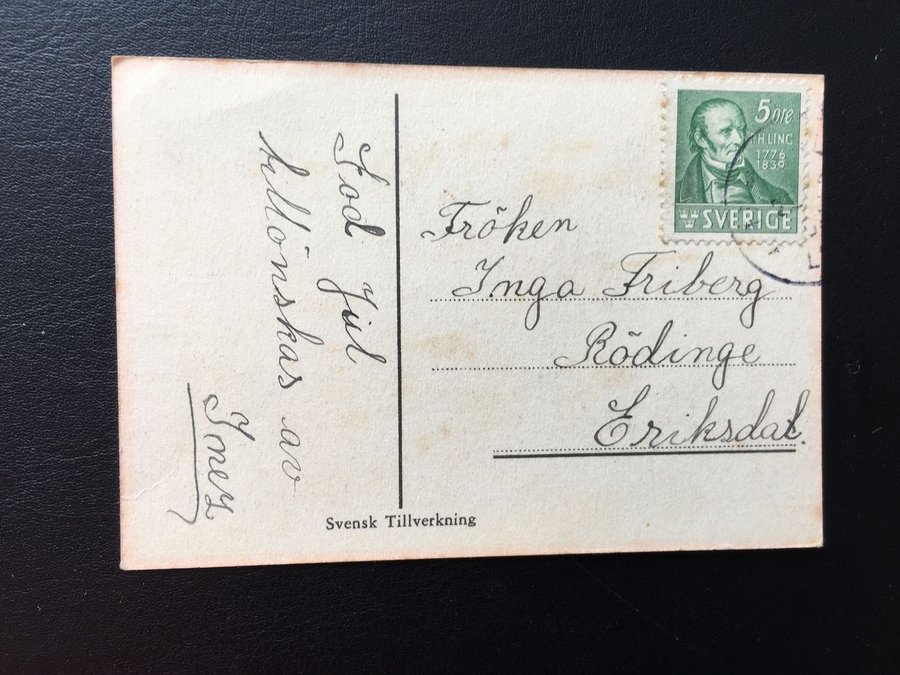 God Jul
tillönskas av
Inez
5 öre
P.H.LING
1776
1839
SVERIGE
Fröken
Inga Friberg
Rödinge
Eriksdal.
Svensk Tillverkning